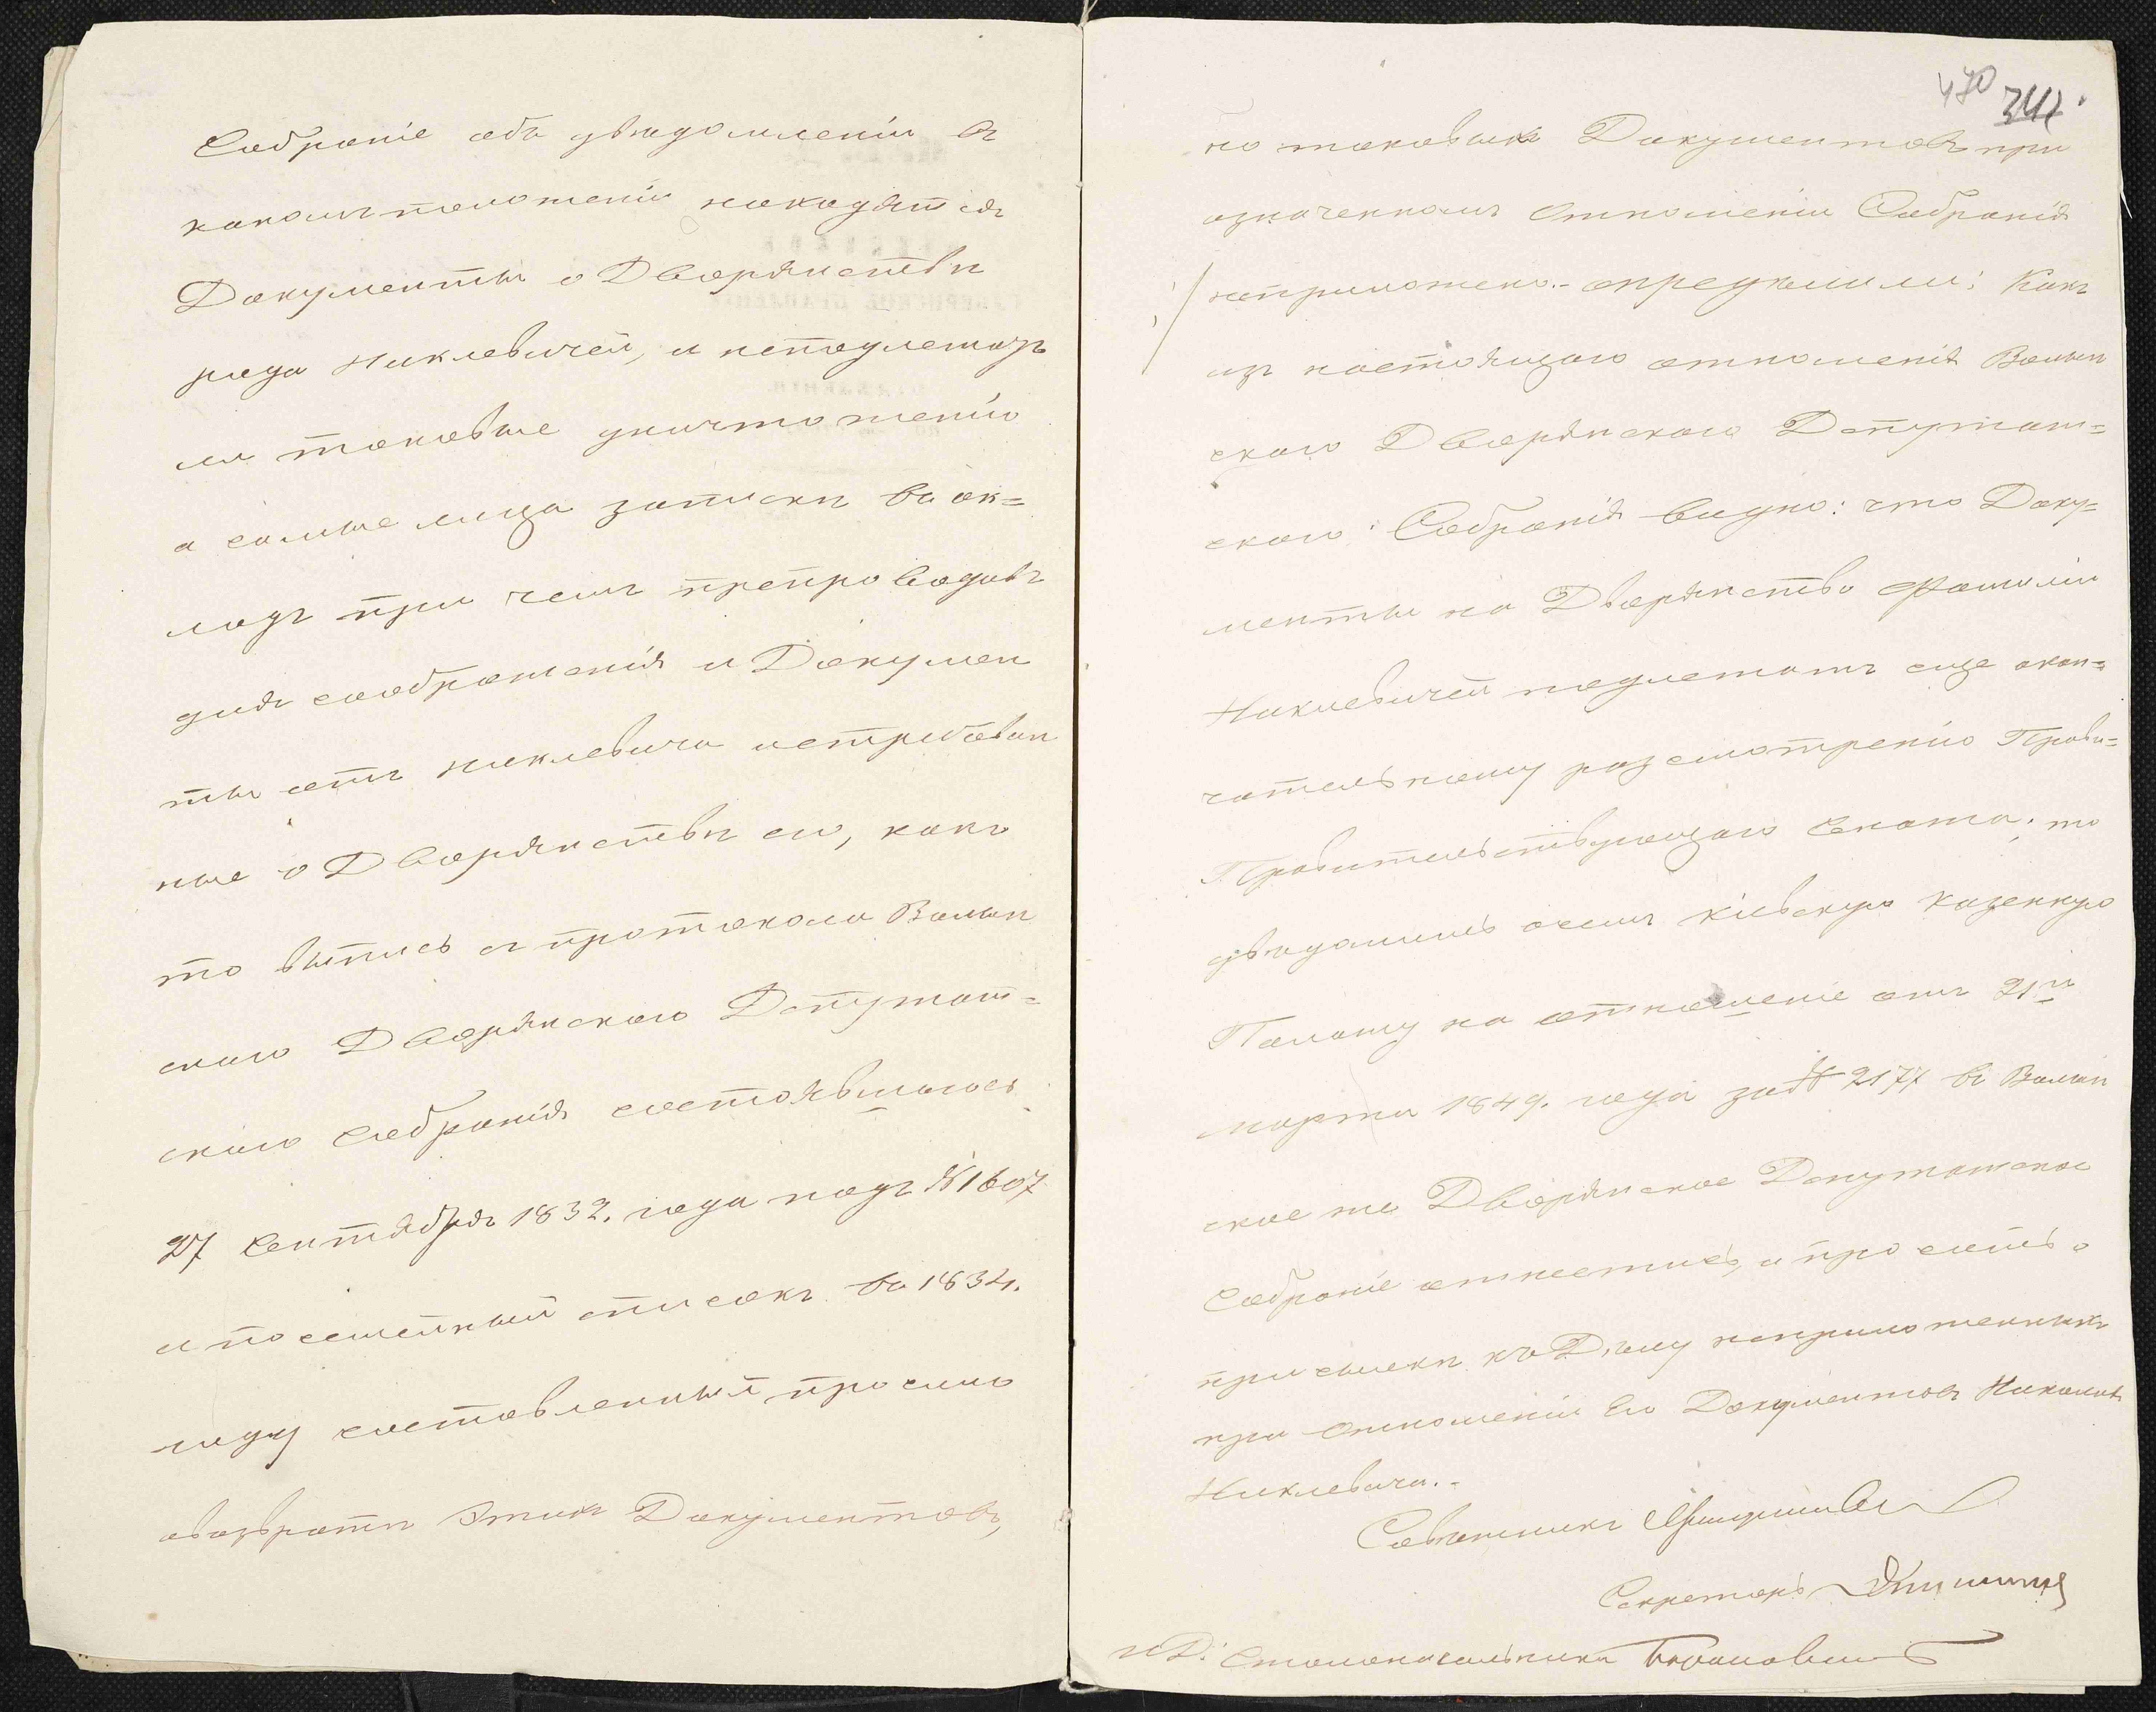 Собраніе объ увѣдомленіи въ
какомъ положеніи находятся
Документы о Дворянствѣ
рода Никлевичей, и неподлежатъ
ли таковые уничтоженію
а самые лица запискѣ въ ок=
ладъ при чемъ препроводивъ
для соображенія и Докумен
ты отъ Никлевича истребован
ные о Дворянствѣ его, какъ
то выпись съ протокола Волын
скаго Дворянскаго Депутат=
скаго Собранія состоявшагось
27 Сентября 1832. года подъ № 1607
и посемейный списокъ въ 1834.
году составленный, просило
овозвратѣ этихъ Документовъ,
470 341
но таковыхъ Документовъ при
означенномъ отношеніи Собранія
неприложено.- опредѣлили: Какъ
изъ настоящаго отношенія Волын
скаго Дворянскаго Депутат=
скаго Собранія видно: что Доку=
менты на Дворянство Фамиліи
Никлевичей подлежатъ еще окон=
чательному разсмотренію Прави=
Правительствующаго Сената; то
увѣдомить очемъ Кіевскую Казенную
Палату на отношеніе отъ 21й
марта 1849. года за № 2177 въ Волын
ское же Дворянское Депутатское
Собраніе отнестись, и просить о
присылкѣ къ Дѣлу неприложенныхъ
при отношеніи Его Документовъ
Никлевича.-
Совѣтникъ
Секретарь
и Д: Столоначальника